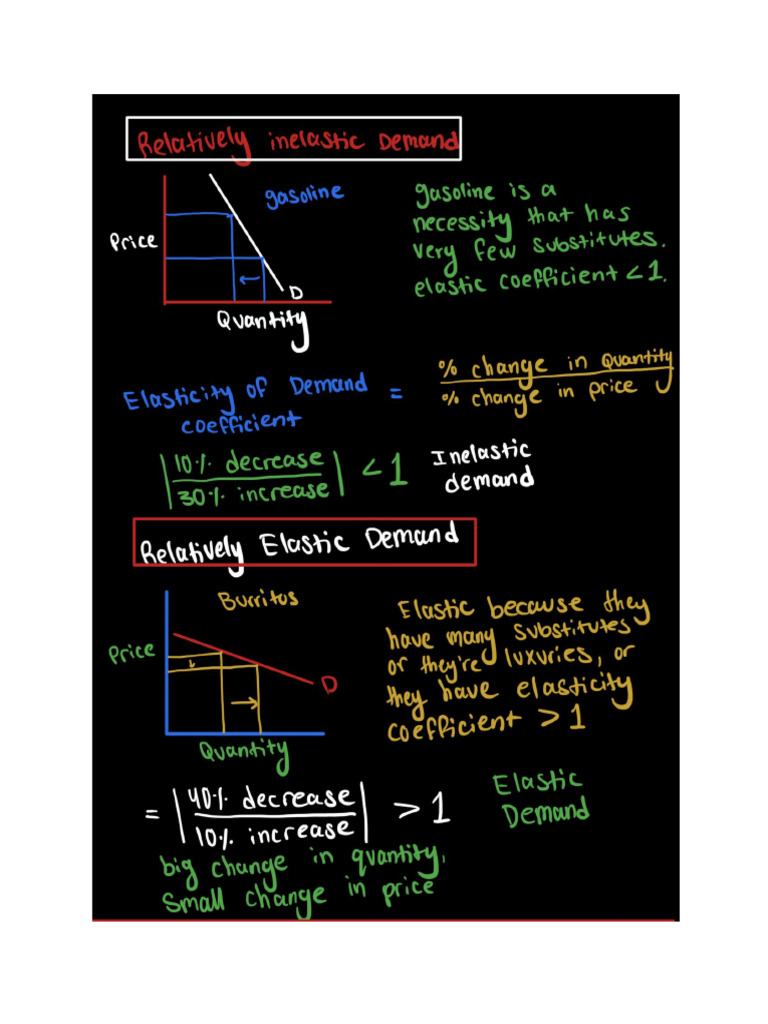 Relatively inelastic Demand
gasoline
Price
D
Quantity
gasoline is a
necessity that has
very few substitutes.
elastic coefficient < 1.
Elasticity of Demand
coefficient
=
% change in Quantity
% change in price
|10% decrease
30% increase| < 1
Inelastic
demand
Relatively Elastic Demand
Burritos
Price
D
Quantity
Elastic because they
have many substitutes
or they're luxuries, or
they have elasticity
coefficient > 1
= |40% decrease
10% increase| > 1
Elastic
Demand
big change in quantity,
small change in price